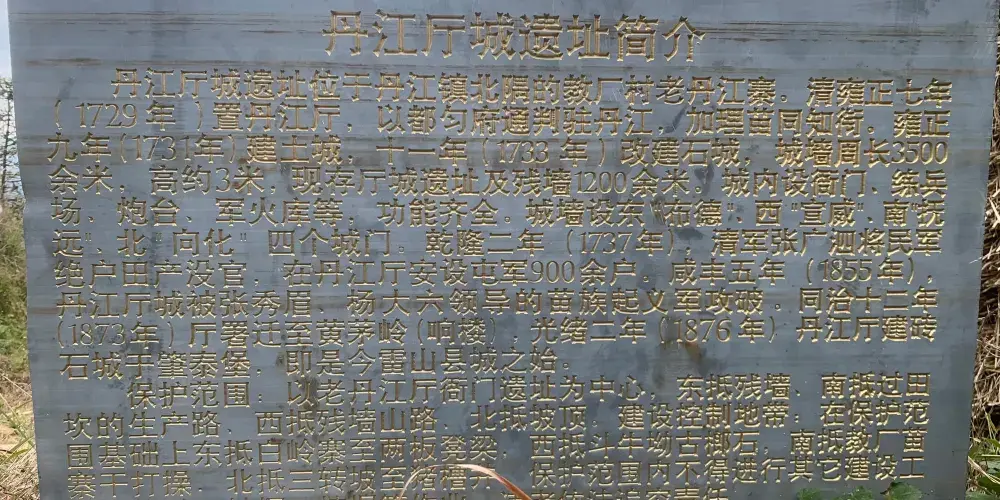 丹江厅城遗址简介
丹江厅城遗址位于丹江镇北隅的教厂村老丹江寨。清雍正七年
（1729年）置丹江厅，以都匀府通判驻丹江，加理苗同知衔。雍正
九年（1731年）建土城，十一年（1733年）改建石城，城墙周长3500
余米，高约3米，现存厅城遗址及残墙1200余米，城内设衙门、练兵
场、炮台、军火库等，功能齐全。城墙设东"布德"、西"宣威"、南"抚
远"、北"向化"四个城门。乾隆二年（1737年），清军张广泗将民军
绝户田产没官，在丹江厅安设屯军900余户。咸丰五年（1855年），
丹江厅城被张秀眉、杨大六领导的苗族起义军攻破。同治十二年
（1873年）厅署迁至黄茅岭（响楼），光绪二年（1876年）丹江厅建砖
石城于肇泰堡，即是今雷山县城之始。
保护范围：以老丹江厅衙门遗址为中心，东抵残墙，南抵过田
坎的生产路，西抵残墙山路，北抵坡顶。建设控制地带：在保护范
围基础上东抵白岭寨至两板凳梁，西抵斗牛坳古榔石，南抵教厂苗
寨干打操，北抵三转坡至 保护范围内不得进行其它建设工